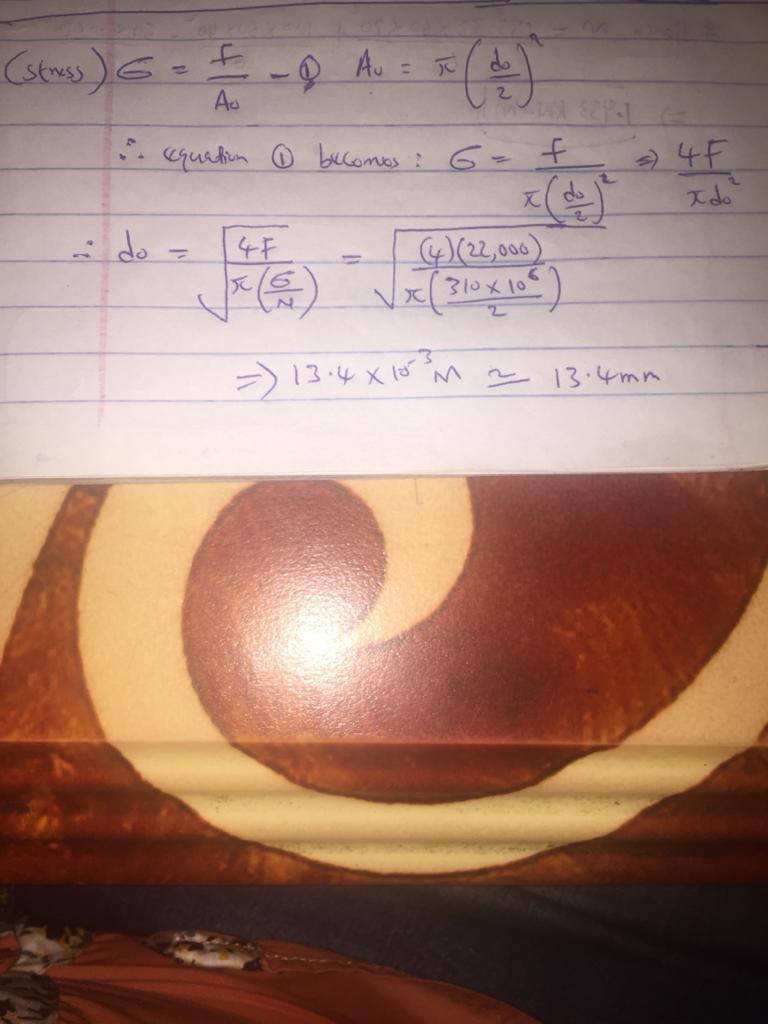 (Stress) σ = F/A₀ - ① A₀ = π(d₀/2)²
∴ equation ① becomes: σ = F/π(d₀/2)² ⇒ 4F/πd₀²
∴ d₀ = √(4F/π(σ/N)) = √((4)(22,000)/π(310×10⁶/2))
⇒ 13.4 × 10⁻³ M ≃ 13.4mm